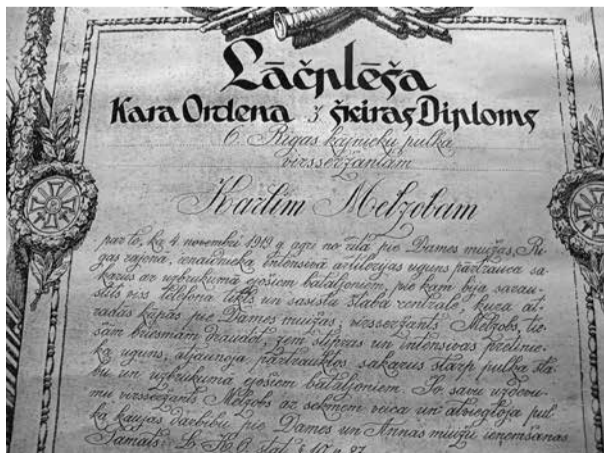 Lāčplēša
Kara Ordena 3. šķiras Diploms
6. Rīgas kājnieku pulka
virsseržantam
Kārlim Melzobam
par to, ka 4. novembrī 1919. g. agri no rīta pie Dames muižas, Rī-
gas rajonā, ienaidnieka intensīvā artilērijas uguns pārtrauca sa-
karus ar uzbrukumā ejošiem bataljoniem, pie kam bija sarau-
stīts viss telefona tīkls un sasista štaba centrāle, kura at-
radās kāpās pie Dames muižas; virsseržants Melzobs, tie-
šām briesmām draudot, zem stipras un intensīvas pretinie-
ka uguns, atjaunoja pārtrauktos sakarus starp pulka šta-
bu un uzbrukumā ejošiem bataljoniem. Šo savu uzdevu-
mu virsseržants Melzobs ar sekmēm veica un atviegloja pul-
ka kaujas darbību pie Dames un Annas muižu ieņemšanas.
Pamats: L. K. O. stat. § 10 p. 27